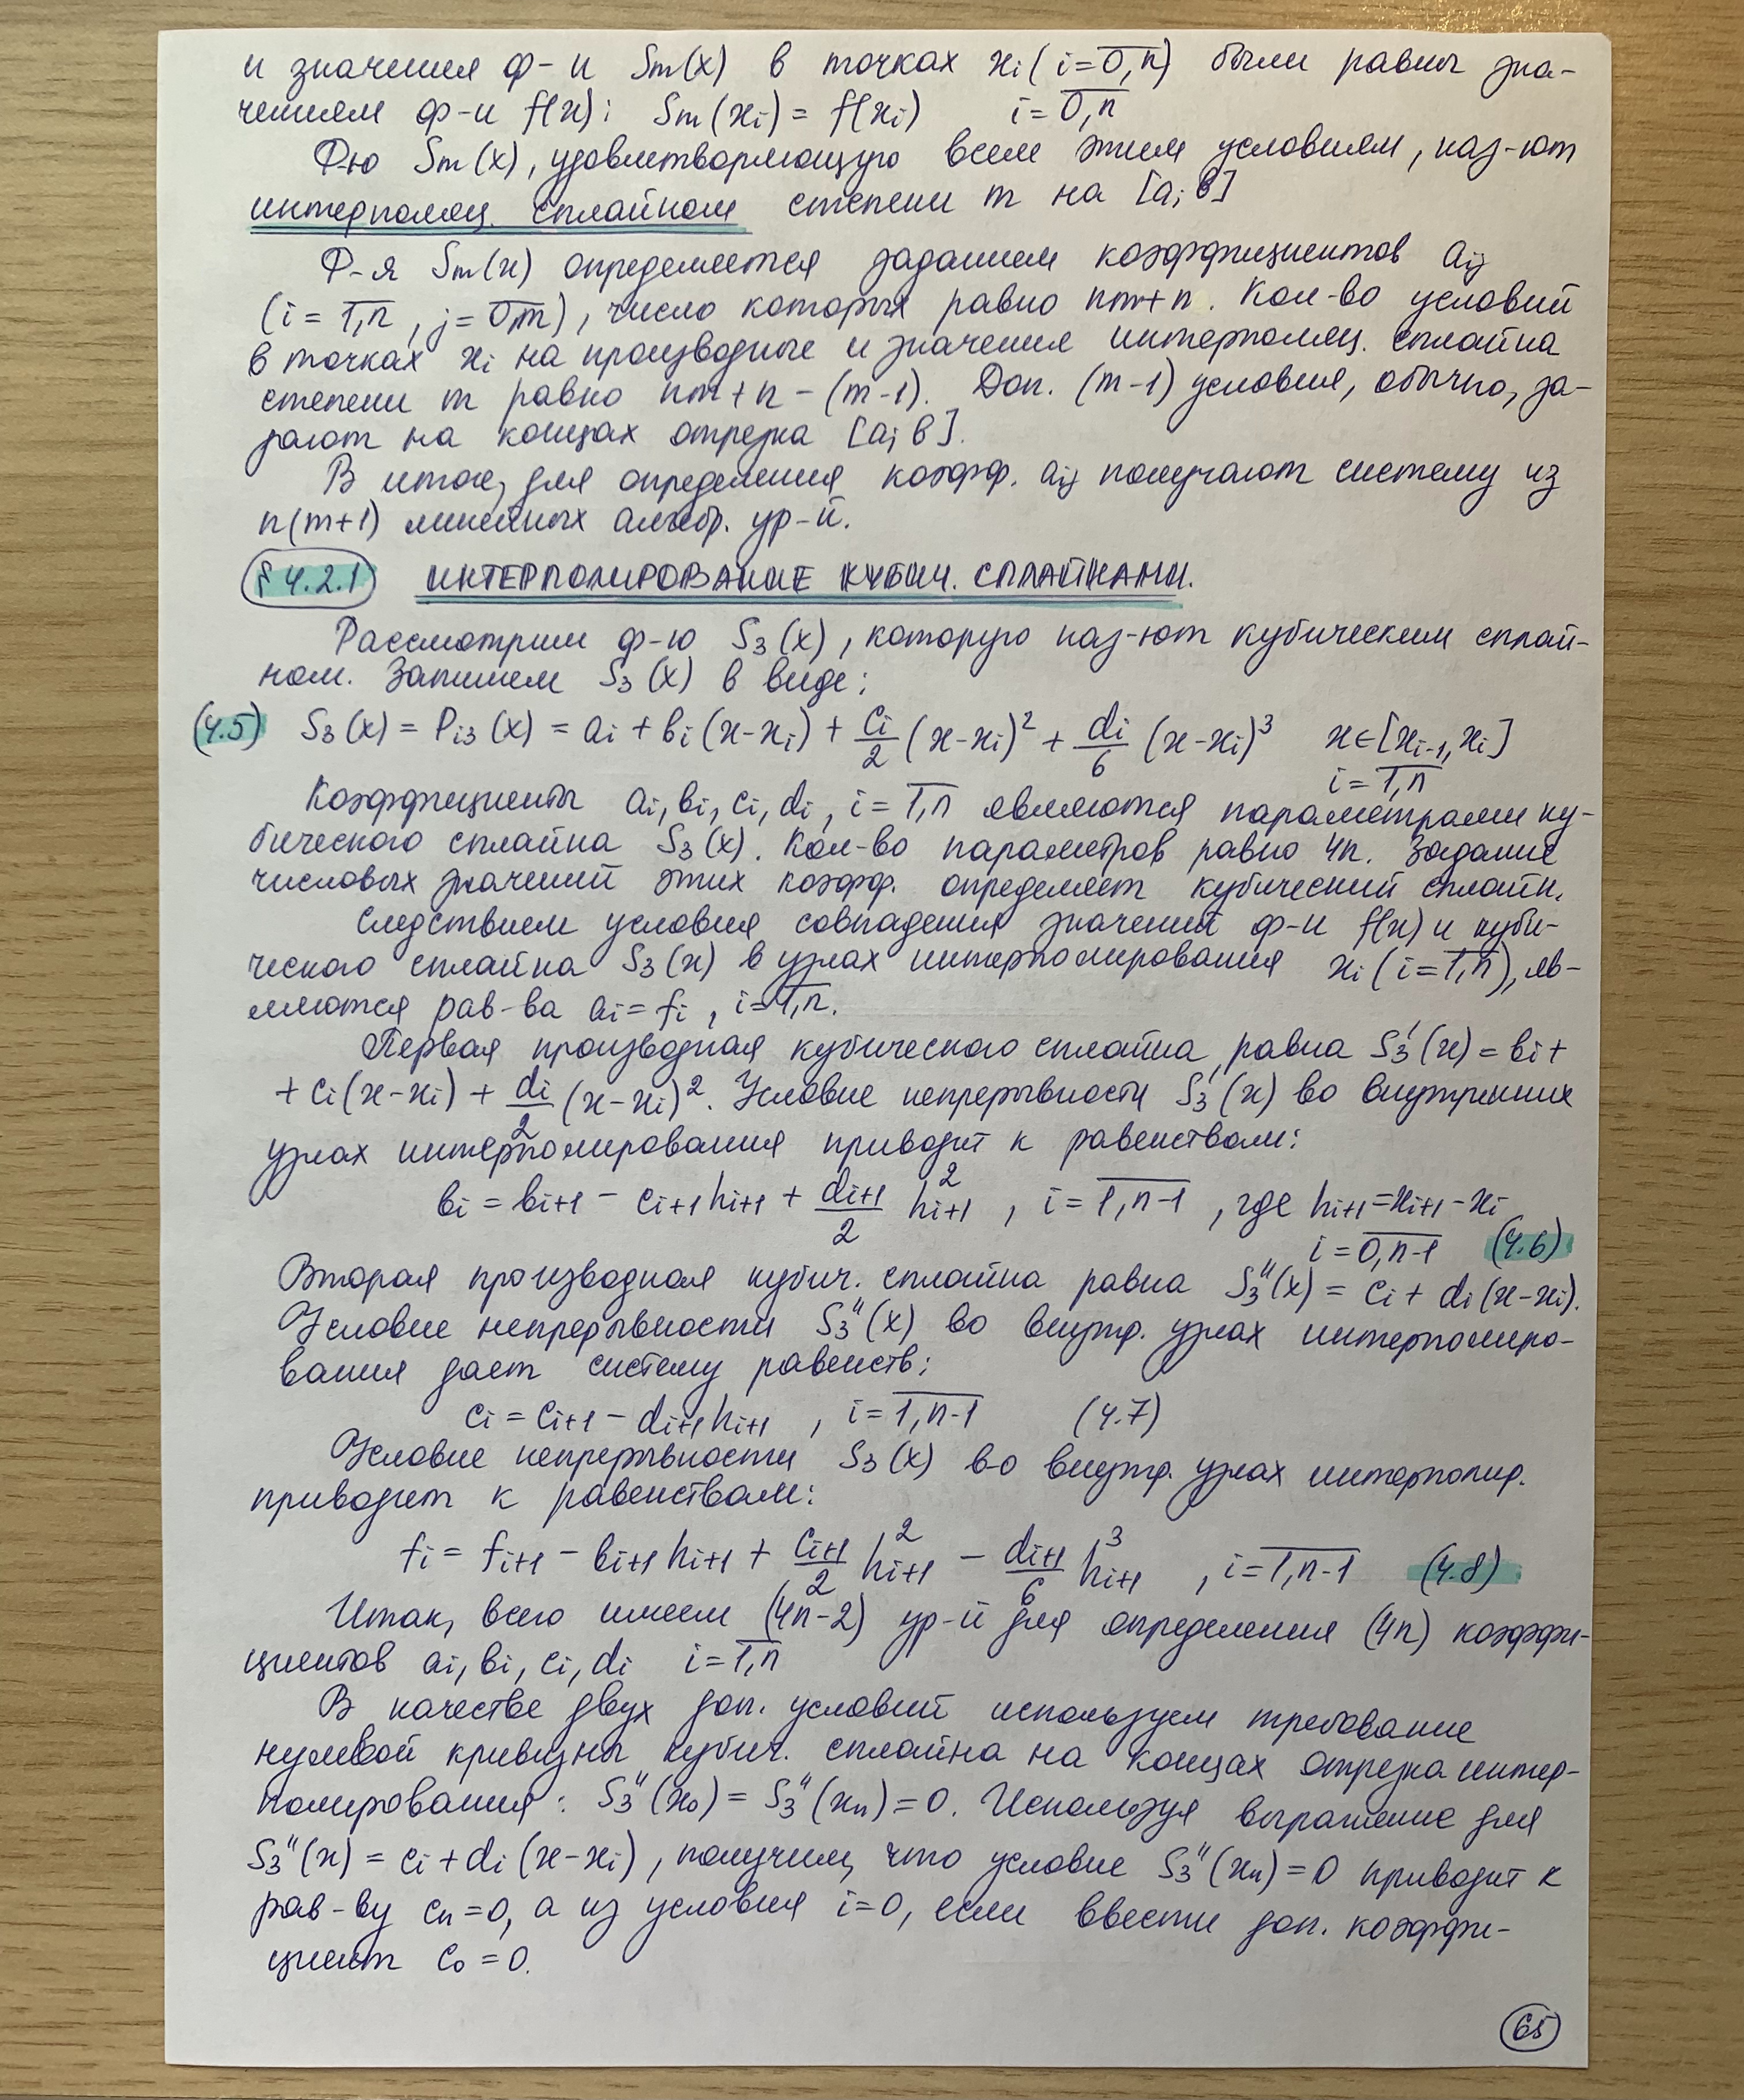 и значения ф-и Sm(x) в точках xi (i=0,n) были равны зна-
чениям ф-и f(x): Sm(xi) = f(xi) i=0,n
Ф-ю Sm(x), удовлетворяющую всем этим условиям, наз-ют
интерполяц. сплайном степени m на [a;b]
Ф-я Sm(x) определяется заданием коэффициентов aij
(i=1,n, j=0,m), число которых равно nm+n. Кол-во условий
в точках xi на производные и значения интерполяц. сплайна
степени m равно nm+n-(m-1). Доп. (m-1) условия, обычно, за-
дают на концах отрезка [a;b].
В итоге, для определения коэфф. aij получают систему из
n(m+1) линейных алгебр. ур-й.
§4.2.1 ИНТЕРПОЛИРОВАНИЕ КУБИЧ. СПЛАЙНАМИ.
Рассмотрим ф-ю S₃(x), которую наз-ют кубическим сплай-
ном. Запишем S₃(x) в виде:
(4.5) S₃(x) = Pi3(x) = ai + bi(x-xi) + ci/2 (x-xi)² + di/6 (x-xi)³ x∈[xi-1, xi]
i=1,n
Коэффициенты ai, bi, ci, di, i=1,n являются параметрами ку-
бического сплайна S₃(x). Кол-во параметров равно 4n. Задание
числовых значений этих коэфф. определяет кубический сплайн.
Следствием условия совпадения значений ф-и f(x) и куби-
ческого сплайна S₃(x) в узлах интерполирования xi (i=1,n), яв-
ляются рав-ва ai=fi, i=1,n.
Первая производная кубического сплайна равна S₃'(x) = bi+
+ ci(x-xi) + di/2 (x-xi)². Условие непрерывности S₃'(x) во внутренних
узлах интерполирования приводит к равенствам:
bi = bi+1 - ci+1hi+1 + di+1/2 h²i+1, i=1,n-1, где hi+1=xi+1-xi
i=0,n-1 (4.6)
Вторая производная кубич. сплайна равна S₃''(x) = ci + di(x-xi).
Условие непрерывности S₃''(x) во внутр. узлах интерполиро-
вания дает систему равенств:
ci = ci+1 - di+1hi+1, i=1,n-1 (4.7)
Условие непрерывности S₃(x) во внутр. узлах интерполир.
приводит к равенствам:
fi = fi+1 - bi+1hi+1 + ci+1/2 h²i+1 - di+1/6 h³i+1, i=1,n-1 (4.8)
Итак, всего имеем (4n-2) ур-й для определения (4n) коэффи-
циентов ai, bi, ci, di i=1,n
В качестве двух доп. условий используем требование
нулевой кривизны кубич. сплайна на концах отрезка интер-
полирования: S₃''(x₀) = S₃''(xn) = 0. Используя выражение для
S₃''(x) = ci+di(x-xi), получим, что условие S₃''(xn)=0 приводит к
рав-ву cn=0, а из условия i=0, если ввести доп. коэффи-
циент c₀=0.
65